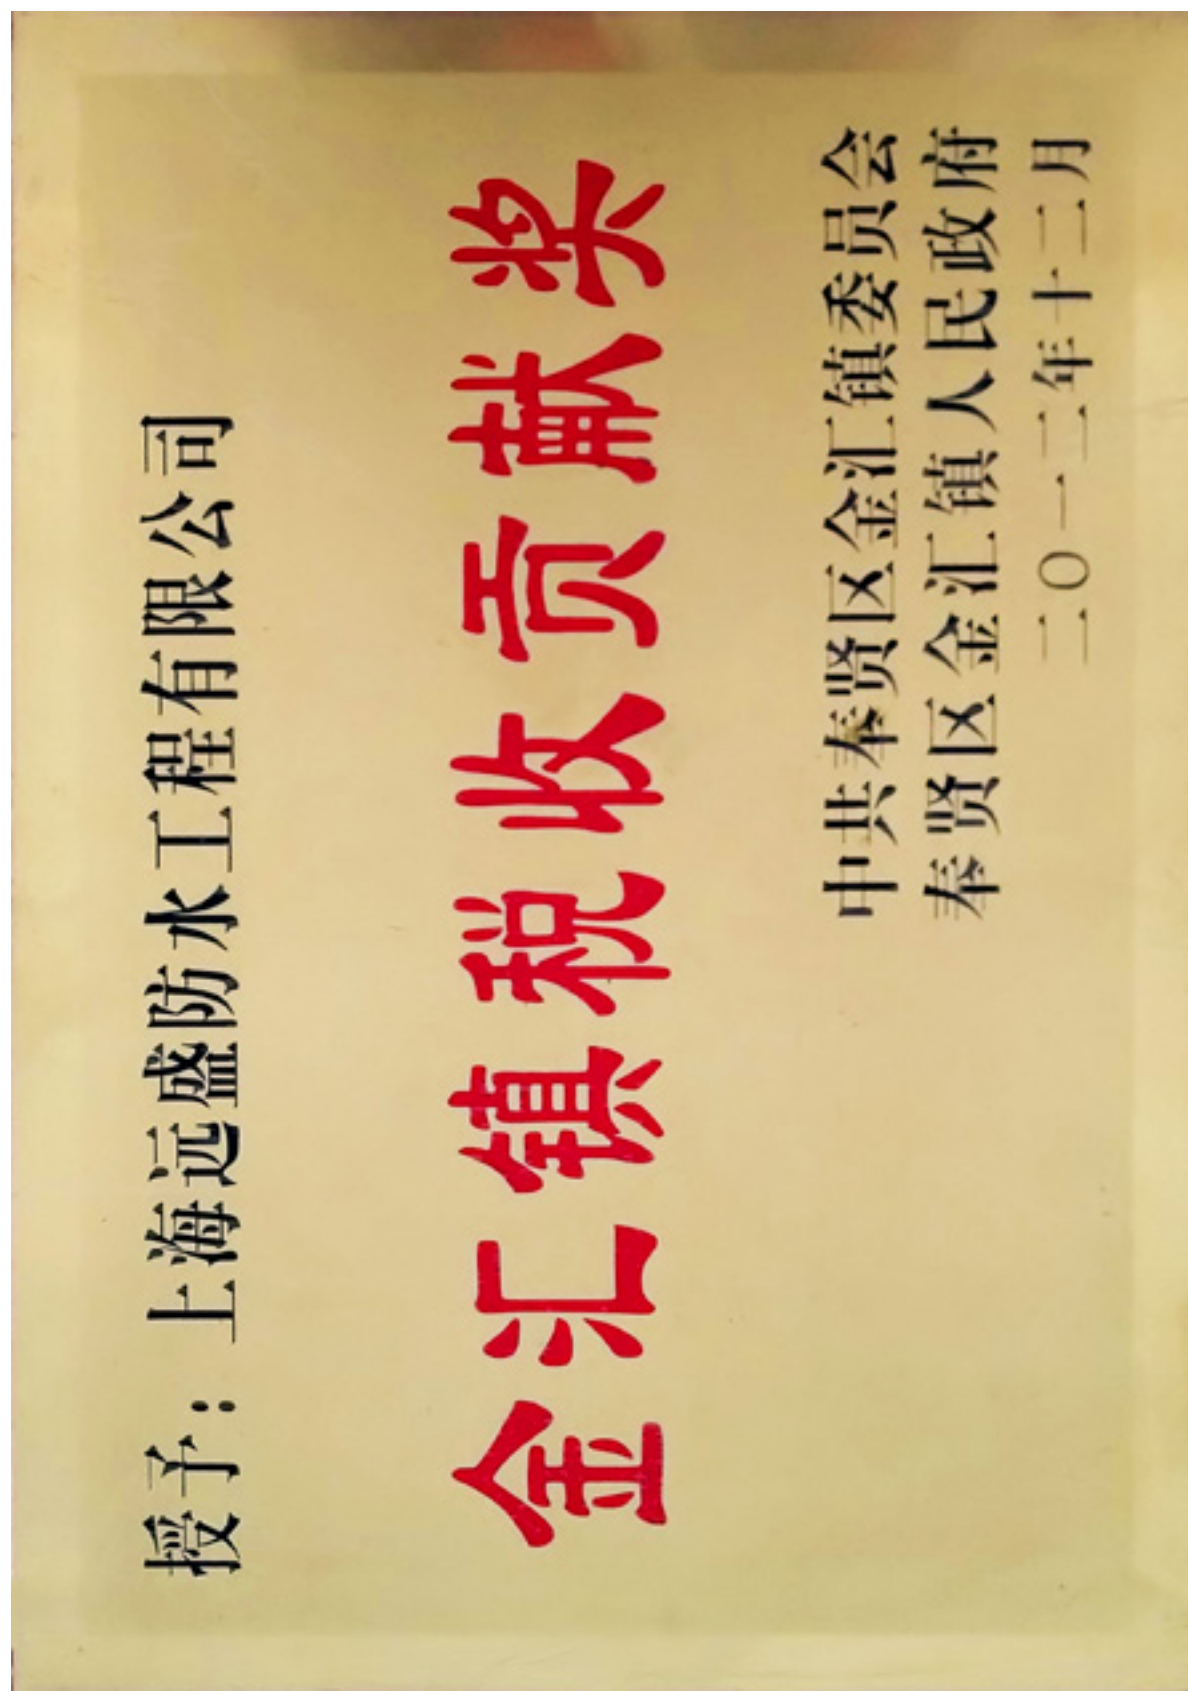 授予：上海远盛防水工程有限公司
金汇镇税收贡献奖
中共奉贤区金汇镇委员会
奉贤区金汇镇人民政府
二〇一二年十二月